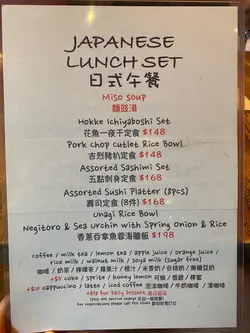 JAPANESE
LUNCH SET
日式午餐
Miso soup
麵豉湯
Hokke Ichiyaboshi Set
花魚一夜干定食 $148
Pork chop cutlet Rice Bowl
吉烈豬扒定食 $148
Assorted Sashimi Set
五點刺身定食 $168
Assorted Sushi Platter (8pcs)
壽司定食 (8件) $168
Unagi Rice Bowl
Negitoro & Sea Urchin with Spring Onion & Rice
香蔥吞拿魚蓉海膽飯 $198
coffee / milk tea / lemon tea / apple juice / orange juice /
rice milk / walnut milk / soya milk (sugar free)
咖啡 / 奶茶 / 檸檬茶 / 蘋果汁 / 橙汁 / 米香奶 / 合桃奶 / 無糖豆奶
+$5 coke / sprite / honey lemon 可樂 / 雪碧 /
+$10 cappuccino / latte / iced coffee 泡沫咖啡 / 牛奶咖啡 / 凍咖啡
plus 10% service charge 另加一服務費